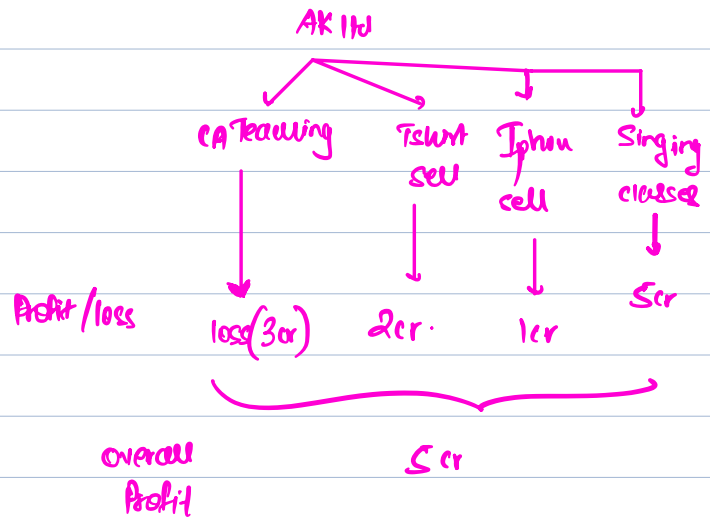 AK ltd
CA Teaching
Tshirt sell
Iphon sell
Singing classes
Profit/loss
loss(3cr)
2cr.
1cr
5cr
overall Profit
5 cr